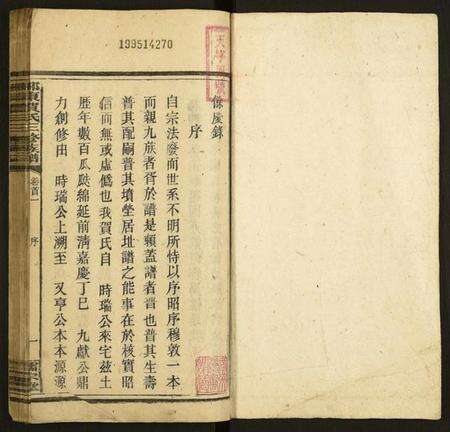 199514270
餘慶錄
序
自宗法廢而世系不明所恃以序昭序穆敦一本
而親九族者胥於譜是賴蓋譜者普也普其生壽
普其配嗣普其墳塋居址譜之能事在於核實昭
信而無或虛僞也我賀氏自 時瑞公來宅茲土
歷年數百瓜瓞綿延前淸嘉慶丁巳 九獻公鼎
力創修由 時瑞公上溯至 叉亨公本本源源
賀氏三修族譜
卷首一
序
一